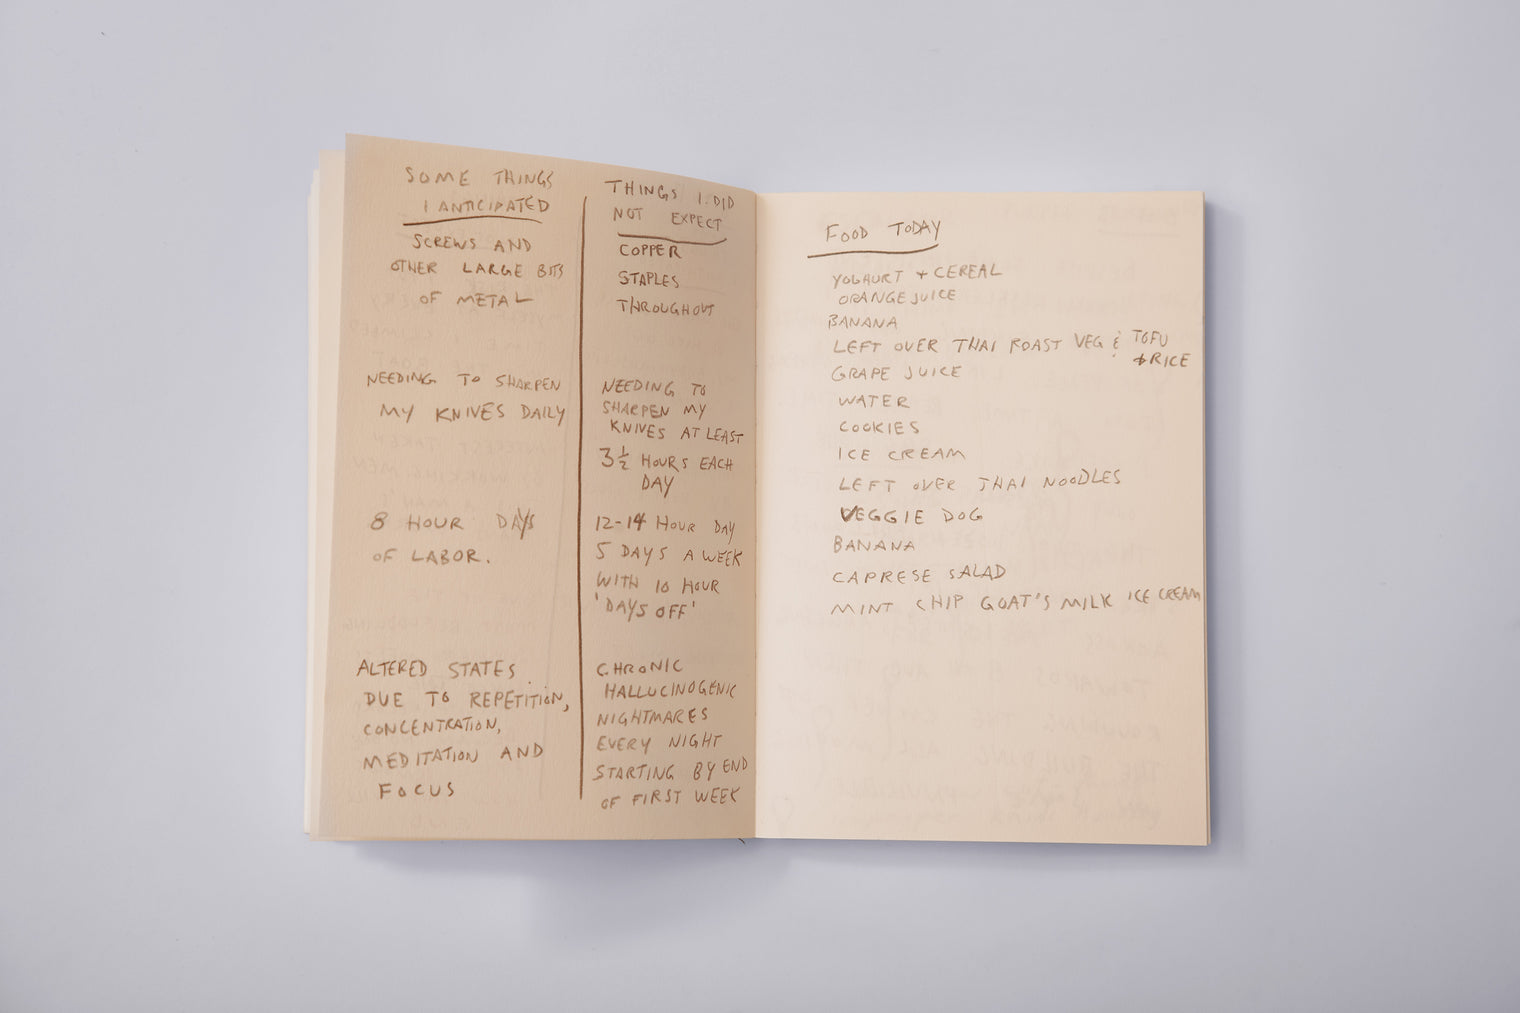 SOME THINGS
I ANTICIPATED
SCREWS AND
OTHER LARGE BITS
OF METAL
NEEDING TO SHARPEN
MY KNIVES DAILY
8 HOUR DAYS
OF LABOR.
ALTERED STATES
DUE TO REPETITION,
CONCENTRATION,
MEDITATION AND
FOCUS
THINGS I DID
NOT EXPECT
COPPER
STAPLES
THROUGHOUT
NEEDING TO
SHARPEN MY
KNIVES AT LEAST
3½ HOURS EACH
DAY
12-14 HOUR DAY
5 DAYS A WEEK
WITH 10 HOUR
'DAYS OFF'
CHRONIC
HALLUCINOGENIC
NIGHTMARES
EVERY NIGHT
STARTING BY END
OF FIRST WEEK
FOOD TODAY
YOGHURT + CEREAL
ORANGE JUICE
BANANA
LEFT OVER THAI ROAST VEG & TOFU
+ RICE
GRAPE JUICE
WATER
COOKIES
ICE CREAM
LEFT OVER THAI NOODLES
VEGGIE DOG
BANANA
CAPRESE SALAD
MINT CHIP GOAT'S MILK ICE CREAM